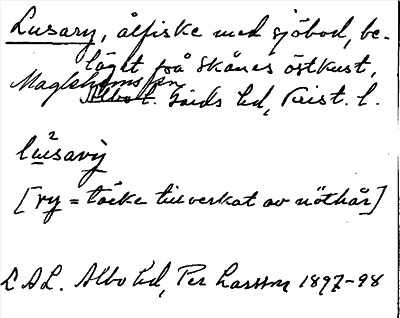 Lusary, ålfiske med sjöbod, be-
läget på Skånes östkust,
Maglehems sn
Albo t. Gärds hd, Krist. l.
2
lusary
[ry = täcke tillverkat av nöthår]
LAL. Albo hd, Per Larsson 1897-98